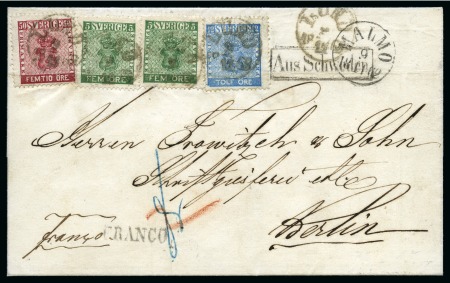 50 SVERIGE 50
FEMTIO ÖRE
5 SVERIGE 5
FEM ÖRE
5 SVERIGE 5
FEM ÖRE
SVERIGE
TOLF ÖRE
MALMÖ
9
Aus Schweden
Herren Trowitzsch & Sohn
Schriftgiesserei etc
Berlin
franco
FRANCO